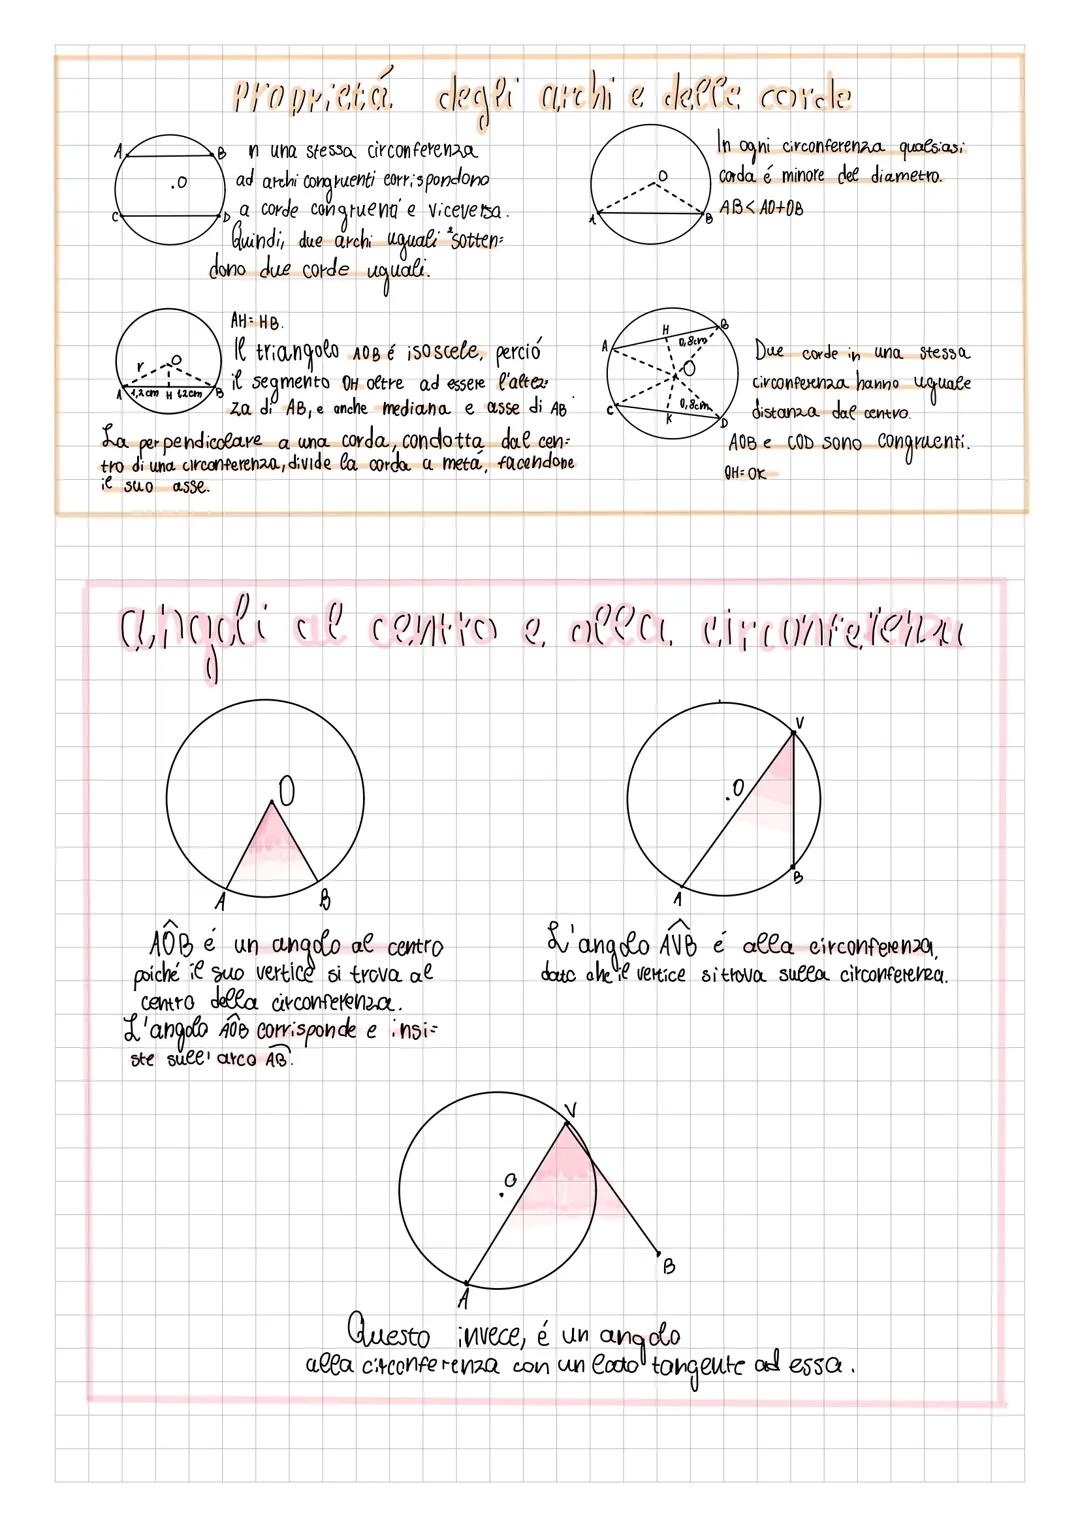 Proprietá degli archi e delle corde
A B
.O
C D
n una stessa circonferenza
ad archi congruenti corrispondono
a corde congruenti e viceversa.
Quindi, due archi uguali "sotten=
dono due corde uguali.
O
A B
In ogni circonferenza qualsiasi
corda é minore del diametro.
AB<AO+OB
r O
A 1,2cm H 1,2cm B
AH=HB.
Il triangolo AOB é isoscele, perció
il segmento OH oltre ad essere l'altez=
za di AB, e anche mediana e asse di AB
La perpendicolare a una corda, condotta dal cen=
tro di una circonferenza, divide la corda a metá, facendone
il suo asse.
A H B
0,8cm
O
C 0,8cm
K D
Due corde in una stessa
circonferenza hanno uguale
distanza dal centro.
AOB e COD sono congruenti.
OH=OK
angoli al centro e alla circonferenza
O
A B
AÔB é un angolo al centro
poiché il suo vertice si trova al
centro della circonferenza.
L'angolo AÔB corrisponde e insi=
ste sull' arco AB.
V
.O
A B
L'angolo AV̂B é alla circonferenza,
dato che il vertice si trova sulla circonferenza.
V
.O
B
A
Questo invece, é un angolo
alla circonferenza con un lato tangente ad essa.